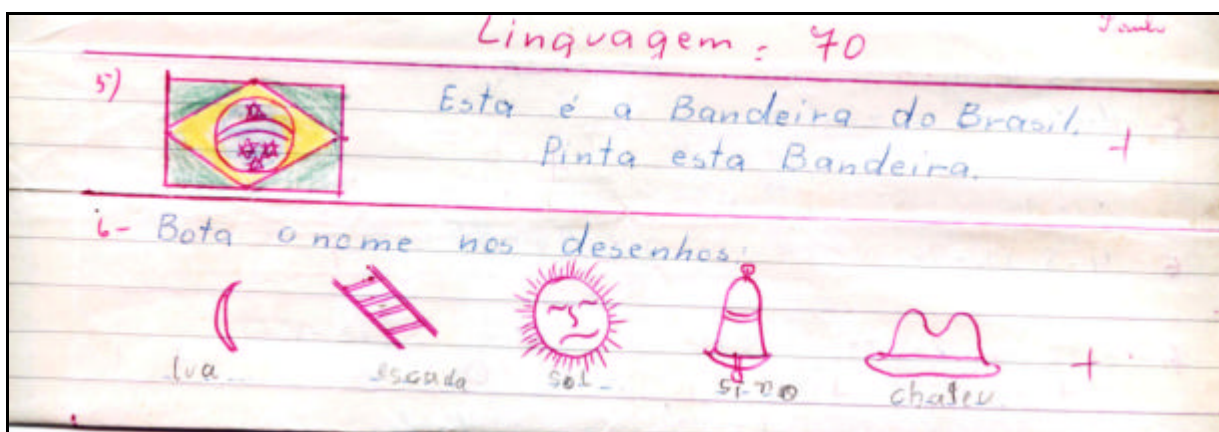 Linguagem : 70
5)
Esta é a Bandeira do Brasil.
Pinta esta Bandeira.
6- Bota o nome nos desenhos:
lua
escada
sol
chafeu